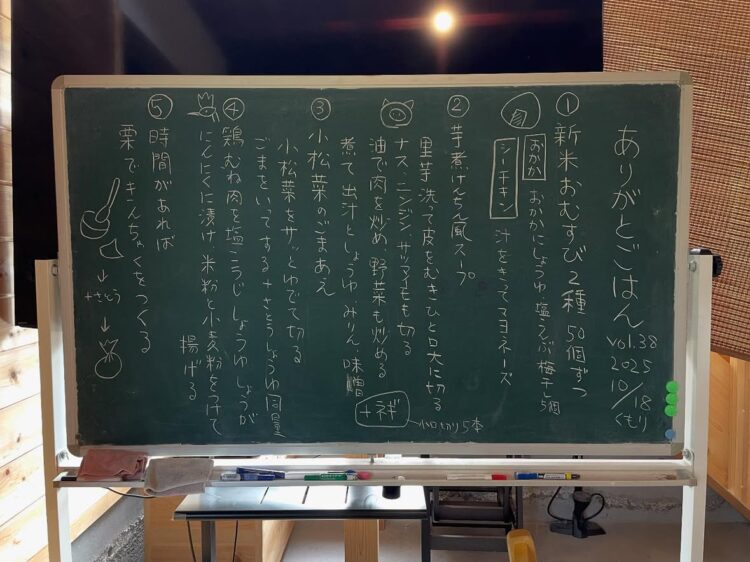 ありがとごはん
vol.38
2025
10/18
くもり
① 新米おむすび2種 50個ずつ
おかか おかかにしょうゆ 塩こんぶ 梅干し5個
シーチキン 汁をきってマヨネーズ
② 芋煮けんちん風スープ
里芋 洗って皮をむきひと口大に切る
ナス、ニンジン、サツマイモも切る
油で肉を炒め 野菜も炒める
煮て 出汁としょうゆ、みりん 味噌
+ネギ 小口切り5本
③ 小松菜のごまあえ
小松菜をサッとゆでて切る
ごまをいってする +さとうしょうゆ 同量
④ 鶏むね肉を塩こうじ しょうゆ しょうが
にんにくに漬け 米粉と小麦粉をつけて
揚げる
⑤ 時間があれば
栗できんちゃくをつくる
↓
+さとう
↓